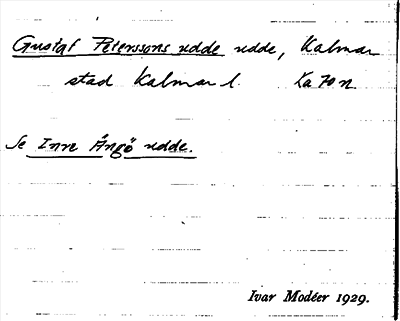 Gustaf Peterssons udde udde, Kalmar
stad Kalmar l. Ka 70 n.
Se Inre Ängö udde.
Ivar Modéer 1929.